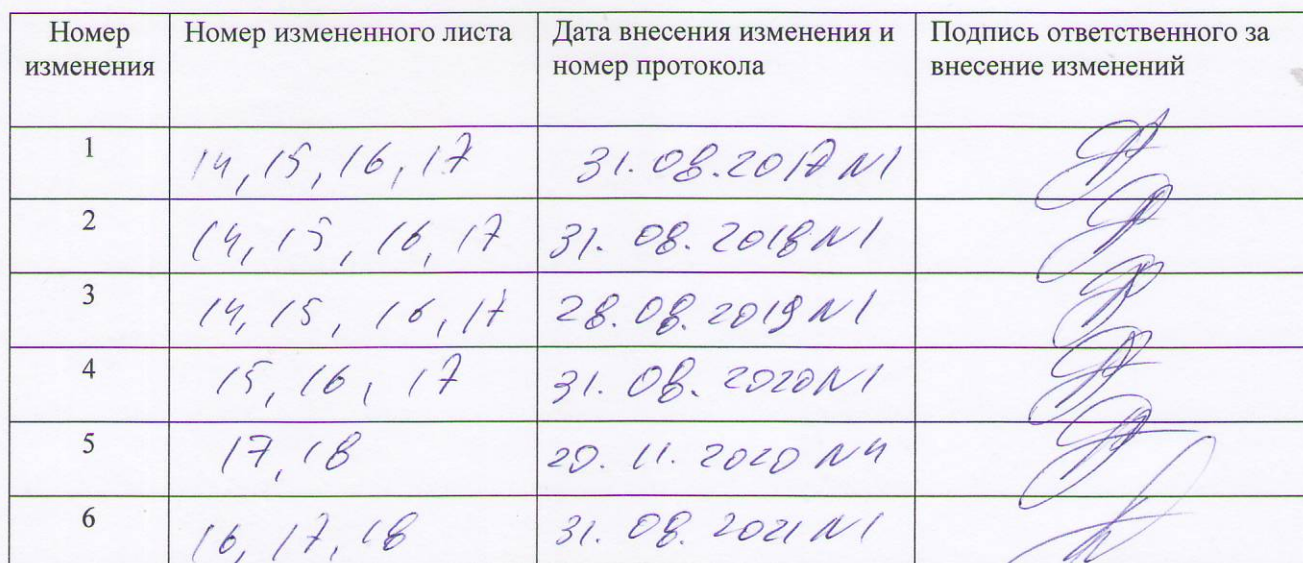 Номер изменения Номер измененного листа Дата внесения изменения и номер протокола Подпись ответственного за внесение изменений
1 14, 15, 16, 17 31.08.2017 N1
2 14, 15, 16, 17 31.08.2018 N1
3 14, 15, 16, 17 28.08.2019 N1
4 15, 16, 17 31.08.2020 N1
5 17, 18 20.11.2020 N4
6 16, 17, 18 31.08.2021 N1